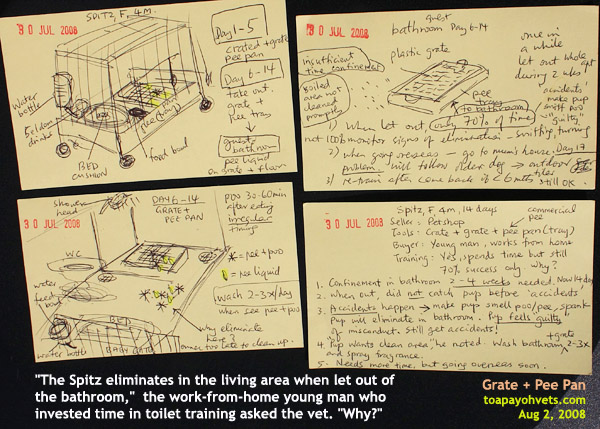 SPITZ, F, 4M.
30 JUL 2008
Day 1-5
crated + grate
pee pan
Day 6-14
take out.
grate +
pee tray
guest
bathroom
pee liquid
on grate + floor
Water
bottle
Seldom
drinks
BED
CUSHION
food bowl
30 JUL 2008
guest
bathroom Day 6-14
plastic grate
one in
a while
let out whole apt
during 2 wks!
accidents
make pup
smell poo
"guilty"
insufficient
time confinement
soiled
area not
cleaned
promptly
pee
tray
to bathroom
1) When let out, only 70% of time
not 100% monitor signs of elimination - sniffing, turning
2) when going overseas - go to mum's house. Day 17
problem: will follow older dog → outdoor
tiles
3) re-train after come back if < 6 mths still OK.
shower
head
DAY 6-14
GRATE +
PEE PAN
30 JUL 2008
poo 30-60 min
after eating
irregular
timings
* = pee + poo
= pee liquid
Wash 2-3x/day
when see pee + poo
W.C.
water
feed
bowl
why eliminate
here?
owner too late to clean up.
water bottle
BABY GATE
30 JUL 2008
Spitz, F, 4m, 14 days
Seller: Petshop
commercial
pee
Tools: Crate + grate + pee pan (tray)
Buyer: Young man, works from home
Training: Yes, spends time but still
70% success only Why?
1. Confinement in bathroom 2-4 weeks needed. Now 14 days
2. when out, did not catch pup before accidents
3. Accidents happen → make pup smell poo/pee, spank
Pup will eliminate in bathroom. Pup feels guilty
of misconduct. Still get accidents!
+ grate
4. "Pup wants clean area," he noted. Wash bathroom 2-3x
and spray fragrance.
5. Needs more time but going overseas soon.
"The Spitz eliminates in the living area when let out of
the bathroom," the work-from-home young man who
invested time in toilet training asked the vet. "Why?"
Grate + Pee Pan
toapayohvets.com
Aug 2, 2008